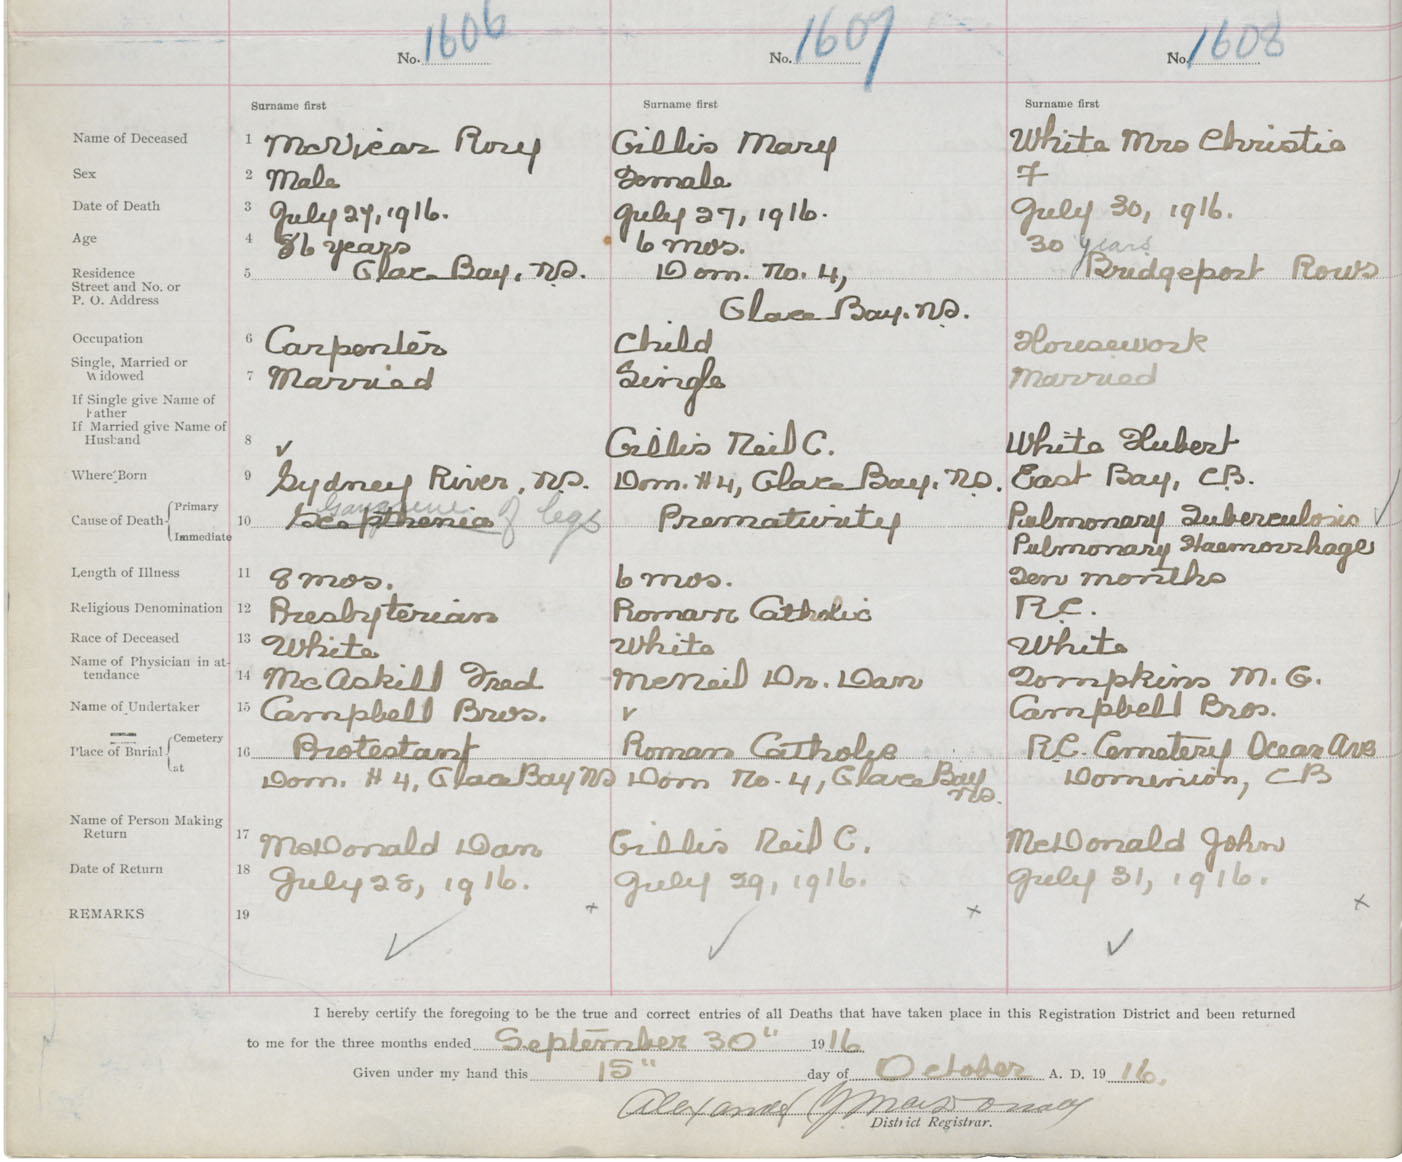 No. 1606 No. 1607 No. 1608
Surname first Surname first Surname first
Name of Deceased 1 McVicar Rory Gillis Mary White Mrs Christie
Sex 2 Male Female F
Date of Death 3 July 27, 1916. July 27, 1916. July 30, 1916.
Age 4 86 years 6 mos. 30 years
Residence
Street and No. or
P. O. Address
5 Glace Bay, N.S. Dom. No. 4, Bridgeport Rows
Glace Bay, N.S.
Occupation 6 Carpenter Child Housework
Single, Married or
Widowed 7 Married Single Married
If Single give Name of
Father
If Married give Name of
Husband 8 ✓ Gillis Neil C. White Hubert
Where Born 9 Sydney River, N.S. Dom. #4, Glace Bay, N.S. East Bay, C.B.
Cause of Death Primary 10 Gangrene of legs Prematurity Pulmonary Tuberculosis ✓
Immediate Pulmonary Haemorrhage
Length of Illness 11 8 mos. 6 mos. Ten months
Religious Denomination 12 Presbyterian Roman Catholic R.C.
Race of Deceased 13 White White White
Name of Physician in at-
tendance 14 McAskill Fred McNeil Dr. Dan Tompkins M. G.
Name of Undertaker 15 Campbell Bros. ✓ Campbell Bros.
Place of Burial Cemetery 16 Protestant Roman Catholic R.C. Cemetery Ocean Ave
at Dom. #4, Glace Bay NS Dom No. 4, Glace Bay N.S. Dominion, CB
Name of Person Making
Return 17 McDonald Dan Gillis Neil C. McDonald John
Date of Return 18 July 28, 1916. July 29, 1916. July 31, 1916.
REMARKS 19 ✓ x ✓ x ✓ x
I hereby certify the foregoing to be the true and correct entries of all Deaths that have taken place in this Registration District and been returned
to me for the three months ended September 30" 1916
Given under my hand this 15" day of October A. D. 1916.
Alexander MacDonald
District Registrar.